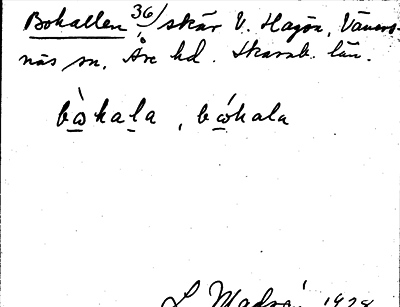 Bokallen 36/, skär V. Hagön, Väners-
näs sn. Åse hd. Skarab. län.
bὼkala, bώkala
L Mads 1928